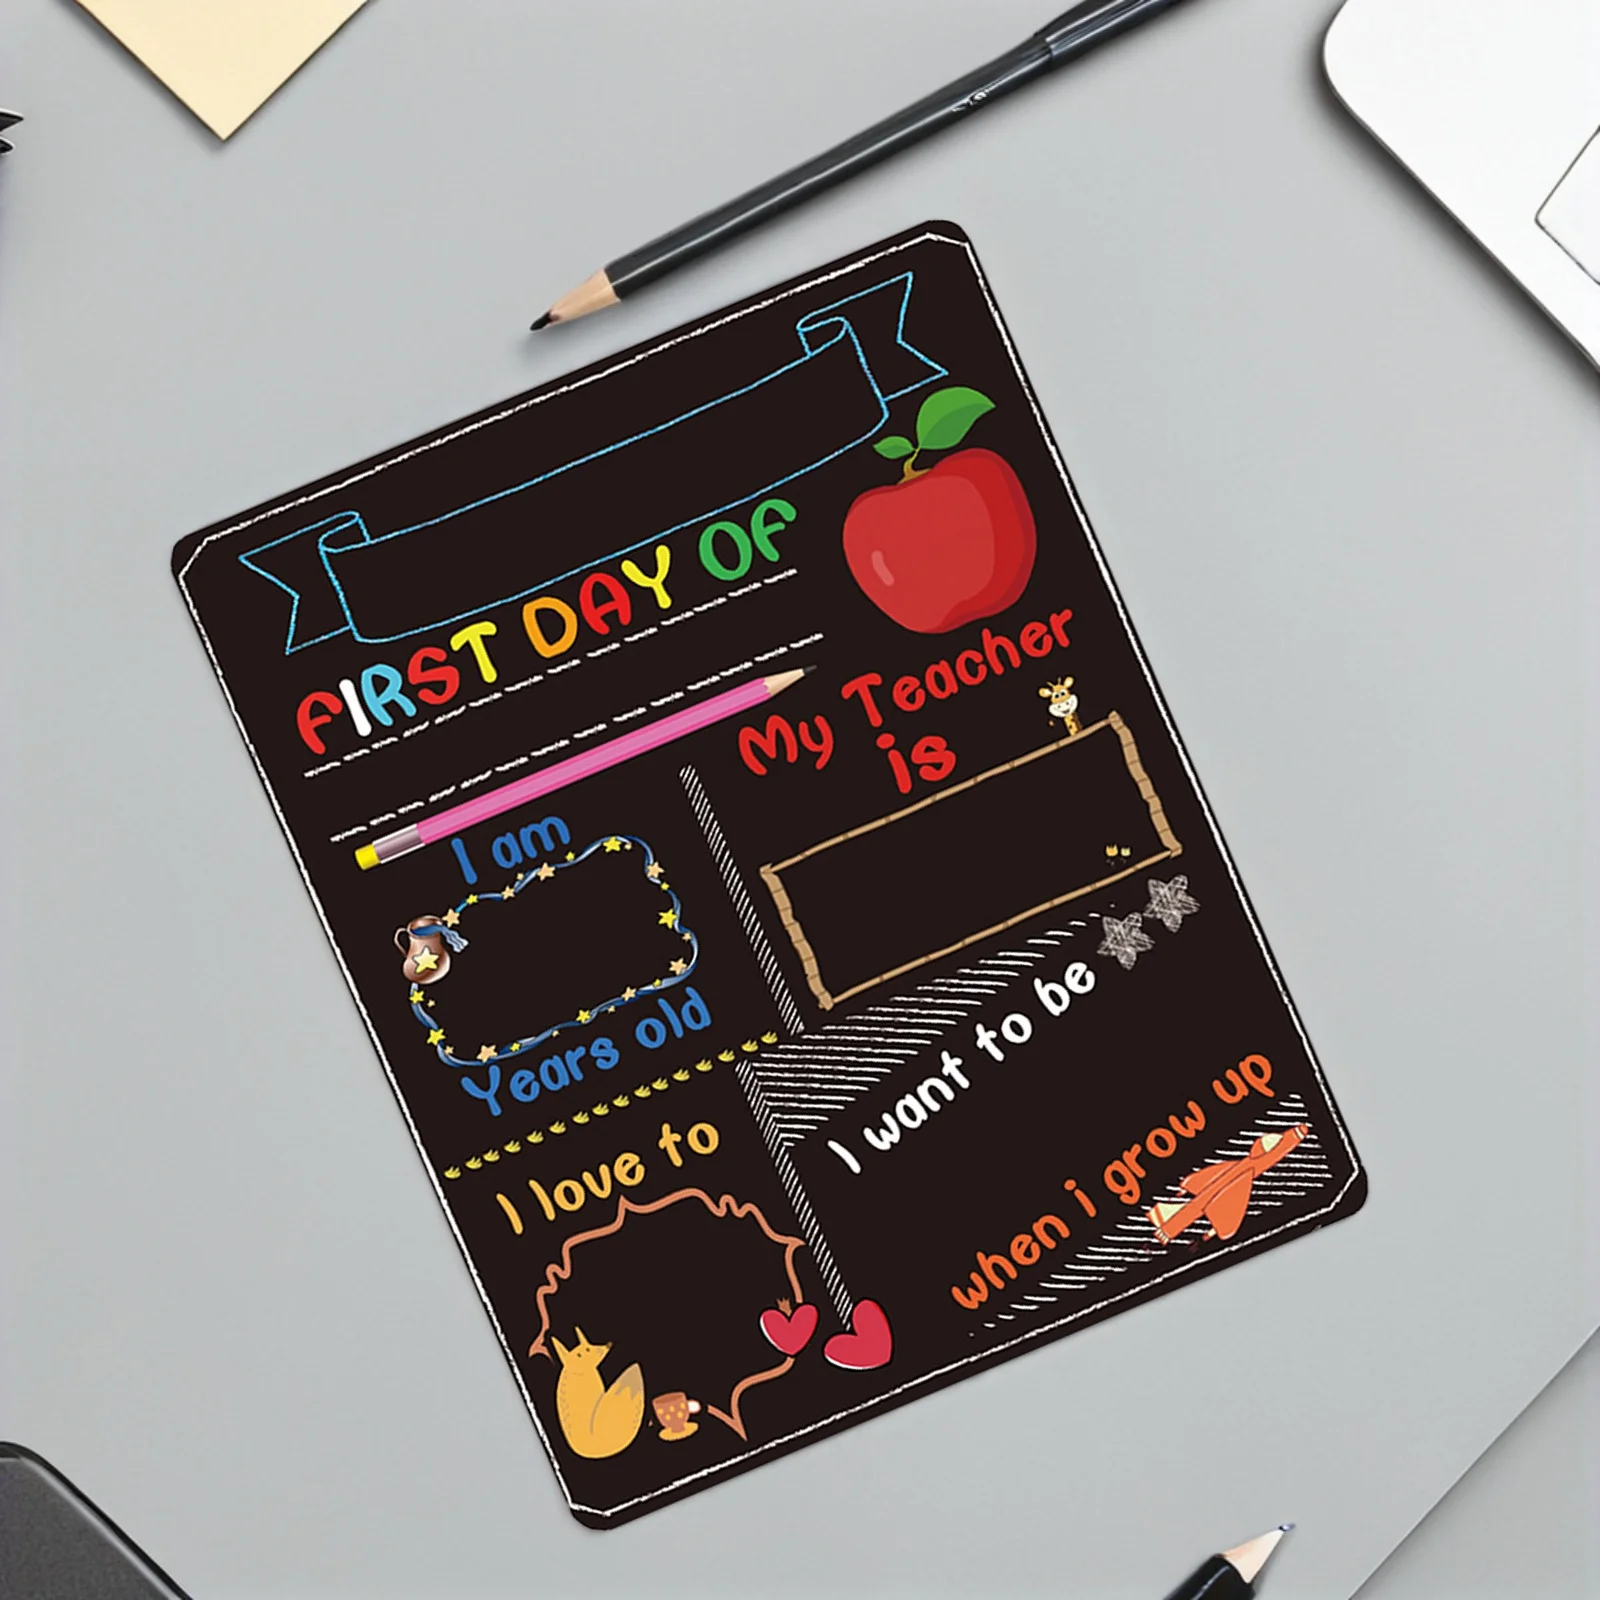 FIRST DAY OF
My Teacher
is
I am
Years old
I love to
I want to be
when i grow up